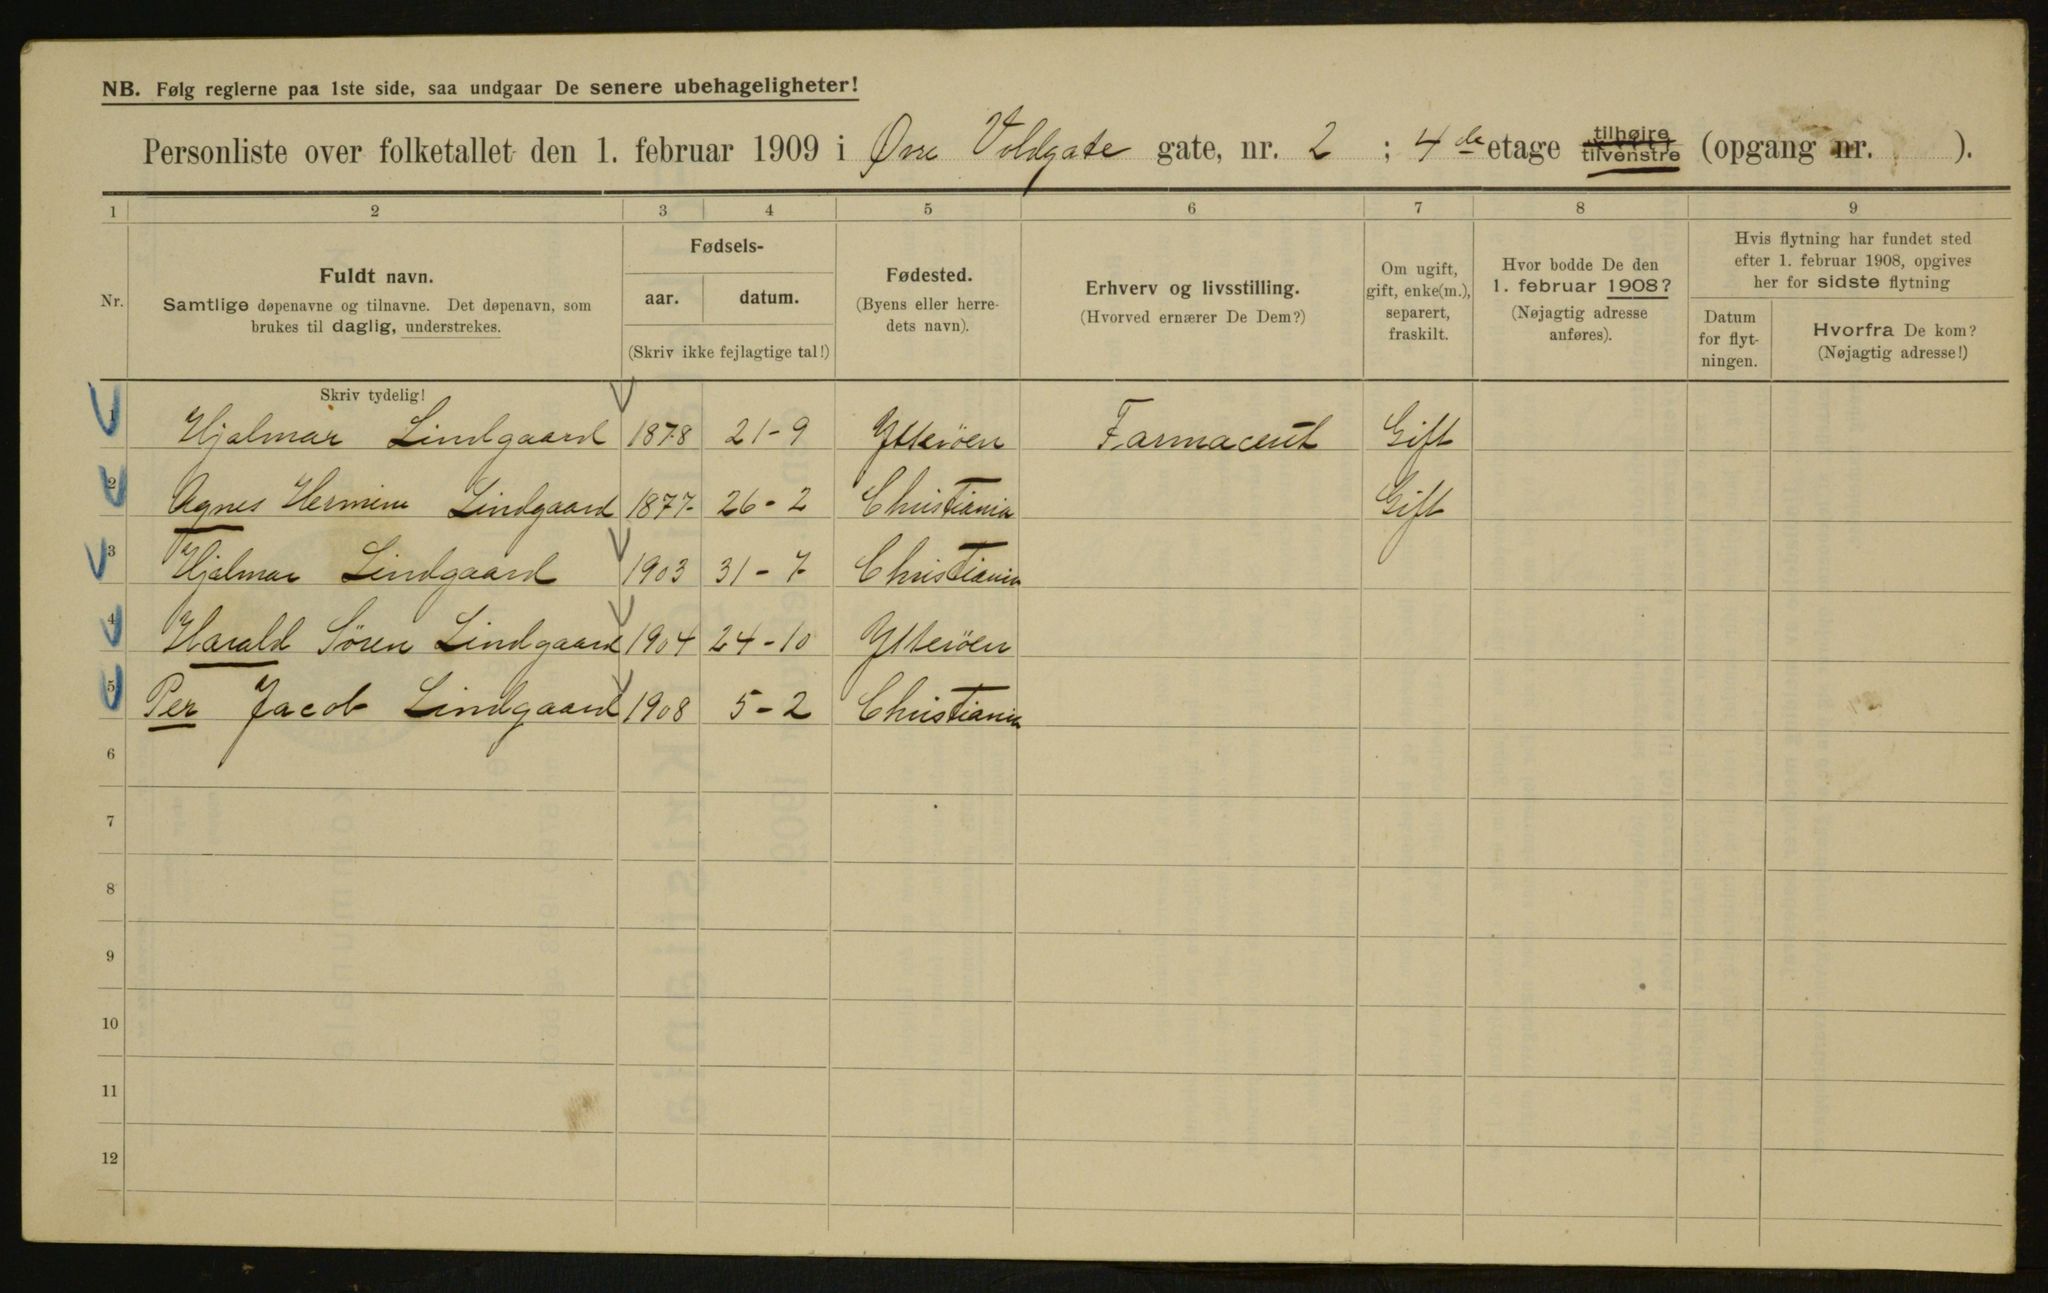 NB. Følg reglerne paa 1ste side, saa undgaar De senere ubehageligheter!
Personliste over folketallet den 1. februar 1909 i Øvre Voldgate gate, nr. 2 ; 4de etage tilhøire tilvenstre (opgang nr. ).
1 2 3 4 5 6 7 8 9
Nr.
Fuldt navn.
Samtlige døpenavne og tilnavne. Det døpenavn, som
brukes til daglig, understrekes.
Fødsels-
aar. datum.
(Skriv ikke fejlagtige tal!)
Fødested.
(Byens eller herre-
dets navn).
Erhverv og livsstilling.
(Hvorved ernærer De Dem?)
Om ugift,
gift, enke(m.),
separert,
fraskilt.
Hvor bodde De den
1. februar 1908?
(Nøjagtig adresse
anføres).
Hvis flytning har fundet sted
efter 1. februar 1908, opgives
her for sidste flytning
Datum
for flyt-
ningen.
Hvorfra De kom?
(Nøjagtig adresse!)
Skriv tydelig!
1 Hjalmar Lindgaard 1878 21-9 Ytteröen Farmaceut Gift
2 Agnes Hermine Lindgaard 1877 26-2 Christiania Gift
3 Hjalmar Lindgaard 1903 31-7 Christiania
4 Harald Sören Lindgaard 1904 24-10 Ytteröen
5 Per Jacob Lindgaard 1908 5-2 Christiania
6
7
8
9
10
11
12